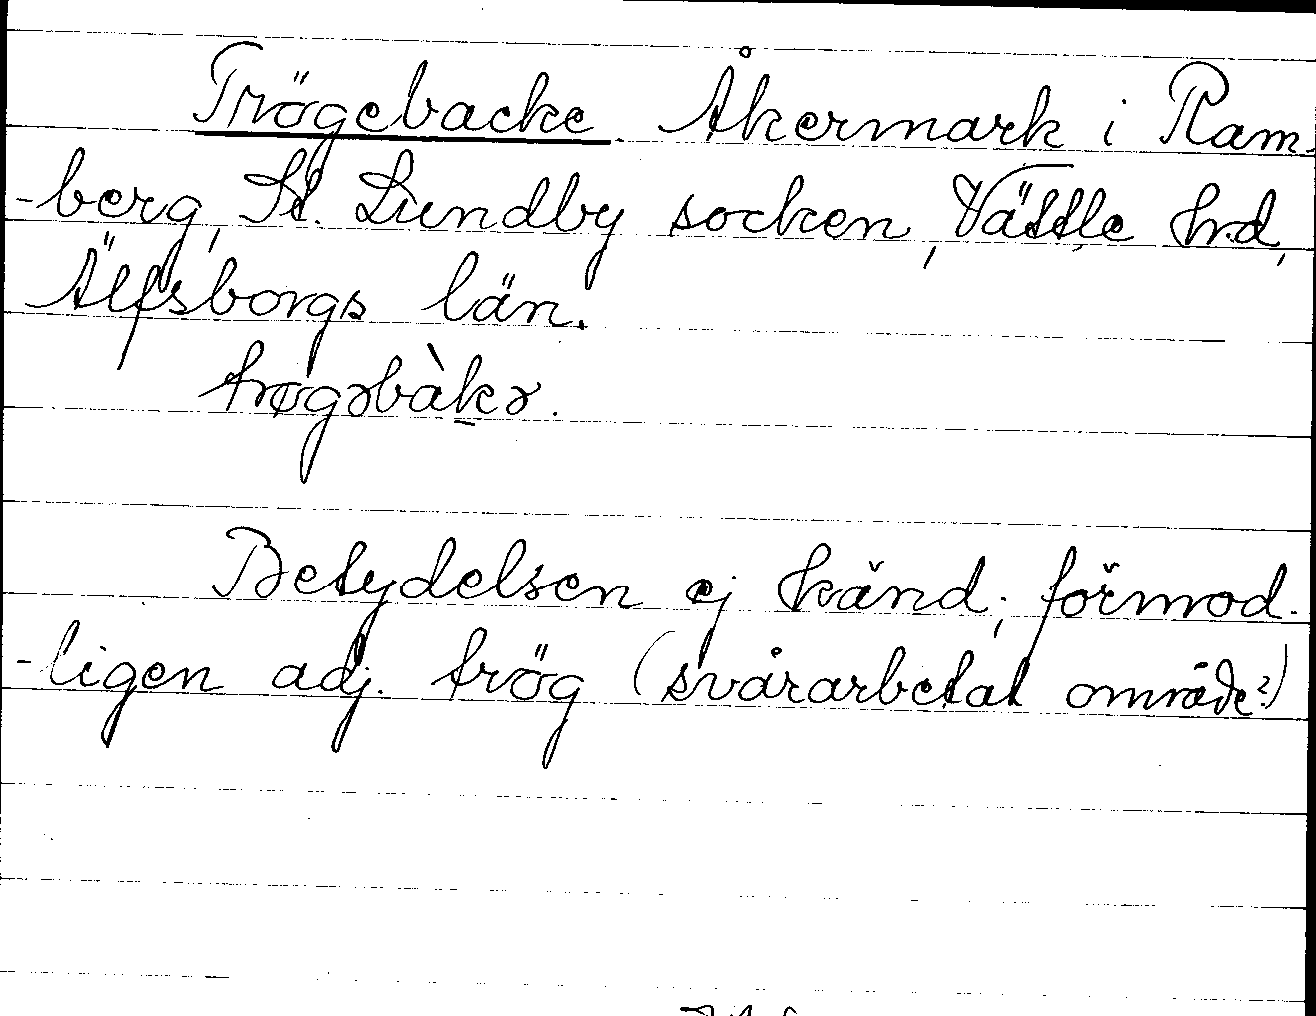 Trögebacke. Åkermark i Ram-
-berg, St. Lundby socken, Vättle hd,
Älfsborgs län.
trøgəbàkə.
Betydelsen ej känd; förmod-
-ligen adj. trög (svårarbetat område?)